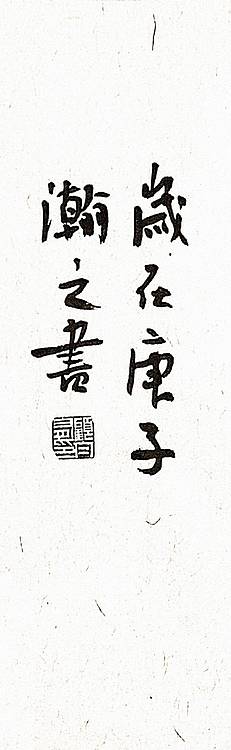 歲在庚子
瀚之書